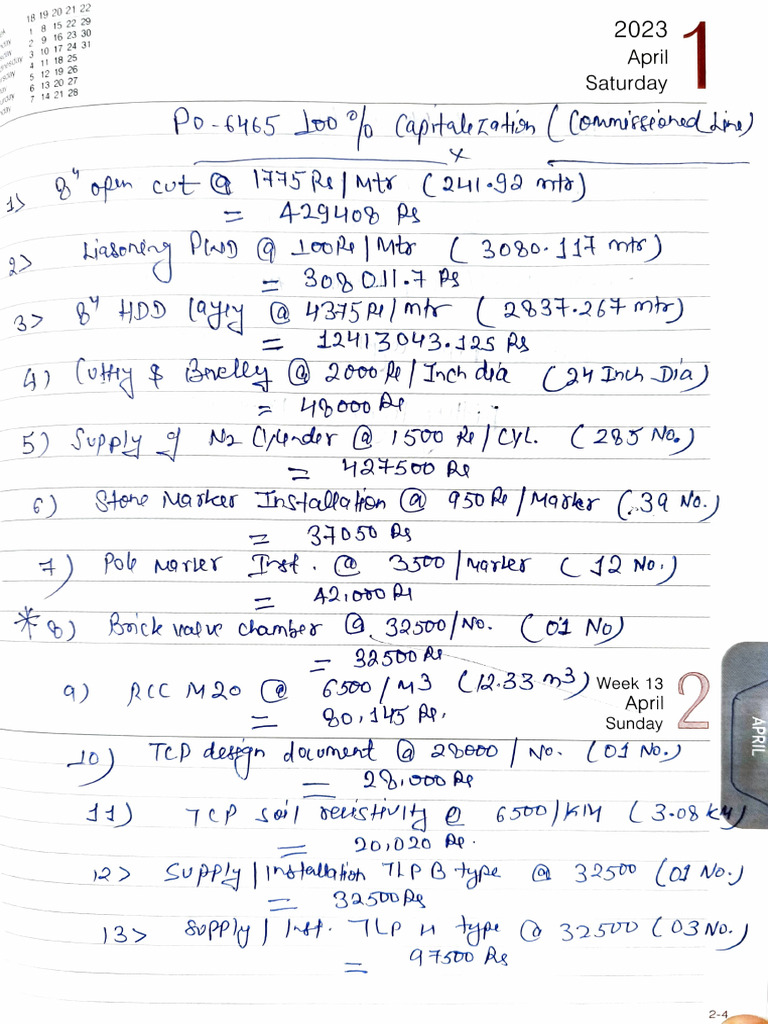 18 19 20 21 22
1 8 15 22 29
2 9 16 23 30
3 10 17 24 31
4 11 18 25
5 12 19 26
6 13 20 27
7 14 21 28
2023
April
Saturday
1
PO-6465 100% Capitalization (Commissioned Line)
x
1> 8" open cut @ 1775 Rs/Mtr (241.92 mtr)
= 429408 Rs
2> Liasoning PWD @ 100Rs/Mtr (3080.117 mtr)
= 308011.7 Rs
3> 8" HDD layey @ 4375 Rs/mtr (2837.267 mtr)
= 12413043.125 Rs
4) Cuttiy & Bevelly @ 2000 Rs/Inch dia (24 Inch Dia)
= 48000 Rs
5) Supply of N2 Cylender @ 1500 Rs/CYL. (285 No.)
= 427500 Rs
6) Stone Marker Installation @ 950 Rs/Marker (39 No.)
= 37050 Rs
7) Pole Marker Inst. @ 3500/Marker (12 No.)
= 42,000 Rs
*8) Brick valve chamber @ 32500/No. (01 No)
= 32500 Rs
9) RCC M20 @ 6500/M3 (12.33 m3)
= 80,145 Rs.
Week 13
April
Sunday
2
APRIL
10) TCP design document @ 28000/No. (01 No.)
= 28,000 Rs
11) TCP soil resistivity @ 6500/KM (3.08 KM)
= 20,020 Rs.
12> Supply/Installation TLP B type @ 32500 (01 No.)
= 32500 Rs
13> Supply/Inst. TLP H type @ 32500 (03 No.)
= 97500 Rs
2-4